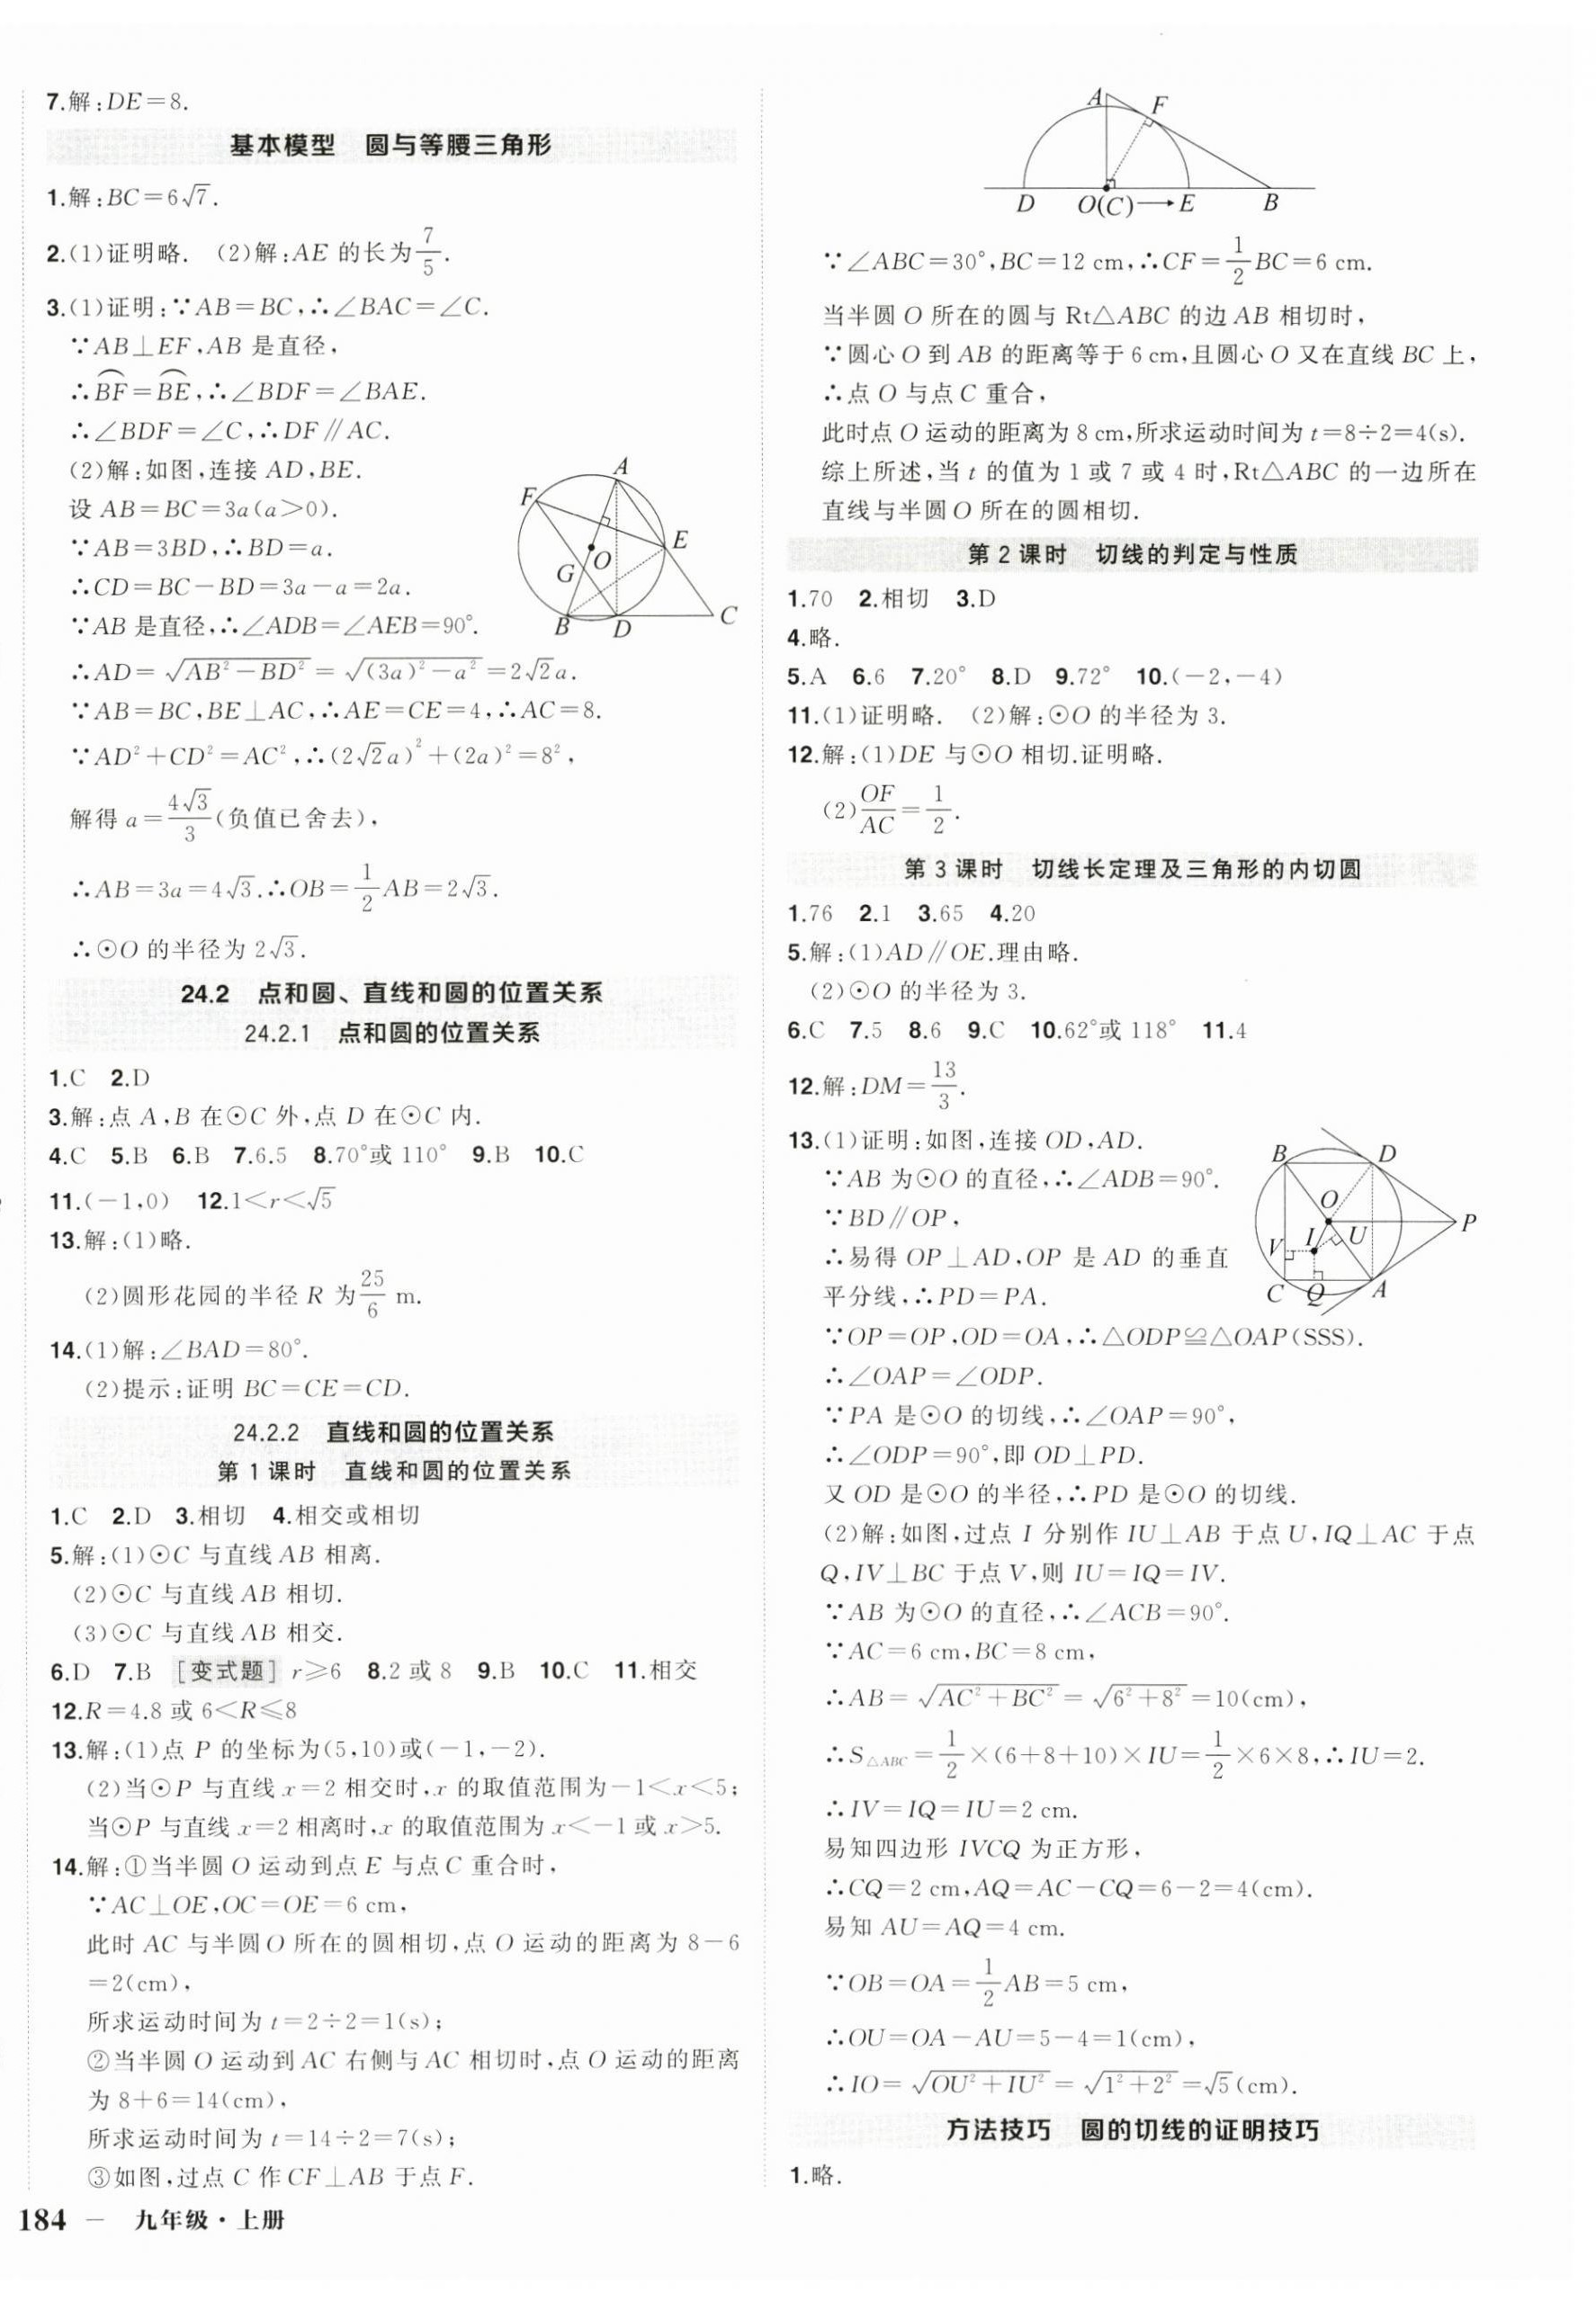 7.解:DE=8.
基本模型 圆与等腰三角形
1.解:BC=6√7.
2.(1)证明略. (2)解:AE 的长为7/5.
3.(1)证明:∵AB=BC,∴∠BAC=∠C.
∵AB⊥EF,AB 是直径,
∴B͡F=B͡E,∴∠BDF=∠BAE.
∴∠BDF=∠C,∴DF∥AC.
(2)解:如图,连接 AD,BE.
设 AB=BC=3a(a>0).
∵AB=3BD,∴BD=a.
∴CD=BC-BD=3a-a=2a.
∵AB 是直径,∴∠ADB=∠AEB=90°.
A
F
E
O
G
B
D
C
∴AD=√(AB²-BD²)=√((3a)²-a²)=2√2a.
∵AB=BC,BE⊥AC,∴AE=CE=4,∴AC=8.
∵AD²+CD²=AC²,∴(2√2a)²+(2a)²=8²,
解得 a=4√3/3(负值已舍去),
∴AB=3a=4√3.∴OB=1/2AB=2√3.
∴⊙O 的半径为 2√3.
24.2 点和圆、直线和圆的位置关系
24.2.1 点和圆的位置关系
1.C 2.D
3.解:点 A,B 在⊙C 外,点 D 在⊙C 内.
4.C 5.B 6.B 7.6.5 8.70°或 110° 9.B 10.C
11.(-1,0) 12.1<r<√5
13.解:(1)略.
(2)圆形花园的半径 R 为25/6 m.
14.(1)解:∠BAD=80°.
(2)提示:证明 BC=CE=CD.
24.2.2 直线和圆的位置关系
第 1 课时 直线和圆的位置关系
1.C 2.D 3.相切 4.相交或相切
5.解:(1)⊙C 与直线 AB 相离.
(2)⊙C 与直线 AB 相切.
(3)⊙C 与直线 AB 相交.
6.D 7.B [变式题] r≥6 8.2 或 8 9.B 10.C 11.相交
12.R=4.8 或 6<R≤8
13.解:(1)点 P 的坐标为(5,10)或(-1,-2).
(2)当⊙P 与直线 x=2 相交时,x 的取值范围为-1<x<5;
当⊙P 与直线 x=2 相离时,x 的取值范围为 x<-1 或 x>5.
14.解:①当半圆 O 运动到点 E 与点 C 重合时,
∵AC⊥OE,OC=OE=6 cm,
此时 AC 与半圆 O 所在的圆相切,点 O 运动的距离为 8-6
=2(cm),
所求运动时间为 t=2÷2=1(s);
②当半圆 O 运动到 AC 右侧与 AC 相切时,点 O 运动的距离
为 8+6=14(cm),
所求运动时间为 t=14÷2=7(s);
③如图,过点 C 作 CF⊥AB 于点 F.
184 — 九年级·上册
A
F
D
O(C)
E
B
∵∠ABC=30°,BC=12 cm,∴CF=1/2BC=6 cm.
当半圆 O 所在的圆与 Rt△ABC 的边 AB 相切时,
∵圆心 O 到 AB 的距离等于 6 cm,且圆心 O 又在直线 BC 上,
∴点 O 与点 C 重合,
此时点 O 运动的距离为 8 cm,所求运动时间为 t=8÷2=4(s).
综上所述,当 t 的值为 1 或 7 或 4 时,Rt△ABC 的一边所在
直线与半圆 O 所在的圆相切.
第 2 课时 切线的判定与性质
1.70 2.相切 3.D
4.略.
5.A 6.6 7.20° 8.D 9.72° 10.(-2,-4)
11.(1)证明略. (2)解:⊙O 的半径为 3.
12.解:(1)DE 与⊙O 相切.证明略.
(2)OF/AC=1/2.
第 3 课时 切线长定理及三角形的内切圆
1.76 2.1 3.65 4.20
5.解:(1)AD∥OE.理由略.
(2)⊙O 的半径为 3.
6.C 7.5 8.6 9.C 10.62°或 118° 11.4
12.解:DM=13/3.
13.(1)证明:如图,连接 OD,AD.
∵AB 为⊙O 的直径,∴∠ADB=90°.
∵BD∥OP,
∴易得 OP⊥AD,OP 是 AD 的垂直
平分线,∴PD=PA.
B
D
O
P
I
U
V
C
Q
A
∵OP=OP,OD=OA,∴△ODP≌△OAP(SSS).
∴∠OAP=∠ODP.
∵PA 是⊙O 的切线,∴∠OAP=90°,
∴∠ODP=90°,即 OD⊥PD.
又 OD 是⊙O 的半径,∴PD 是⊙O 的切线.
(2)解:如图,过点 I 分别作 IU⊥AB 于点 U,IQ⊥AC 于点
Q,IV⊥BC 于点 V,则 IU=IQ=IV.
∵AB 为⊙O 的直径,∴∠ACB=90°.
∵AC=6 cm,BC=8 cm,
∴AB=√(AC²+BC²)=√(6²+8²)=10(cm),
∴S△ABC=1/2×(6+8+10)×IU=1/2×6×8,∴IU=2.
∴IV=IQ=IU=2 cm.
易知四边形 IVCQ 为正方形,
∴CQ=2 cm,AQ=AC-CQ=6-2=4(cm).
易知 AU=AQ=4 cm.
∵OB=OA=1/2AB=5 cm,
∴OU=OA-AU=5-4=1(cm),
∴IO=√(OU²+IU²)=√(1²+2²)=√5(cm).
方法技巧 圆的切线的证明技巧
1.略.